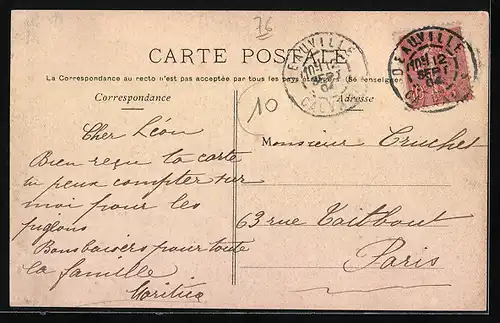 76
CARTE POSTALE
La Correspondance au recto n'est pas acceptée par tous les pays étrangers (Se renseigner
Correspondance
Adresse
10
DEAUVILLE
12
SEPT
04
CALVADOS
DEAUVILLE
12
SEPT
04
Cher Léon
Bien reçu ta carte
tu peux compter sur
moi pour les
pigeons
Bons baisers pour toute
la famille
Monsieur Cruchet
63 rue Taitbout
Paris